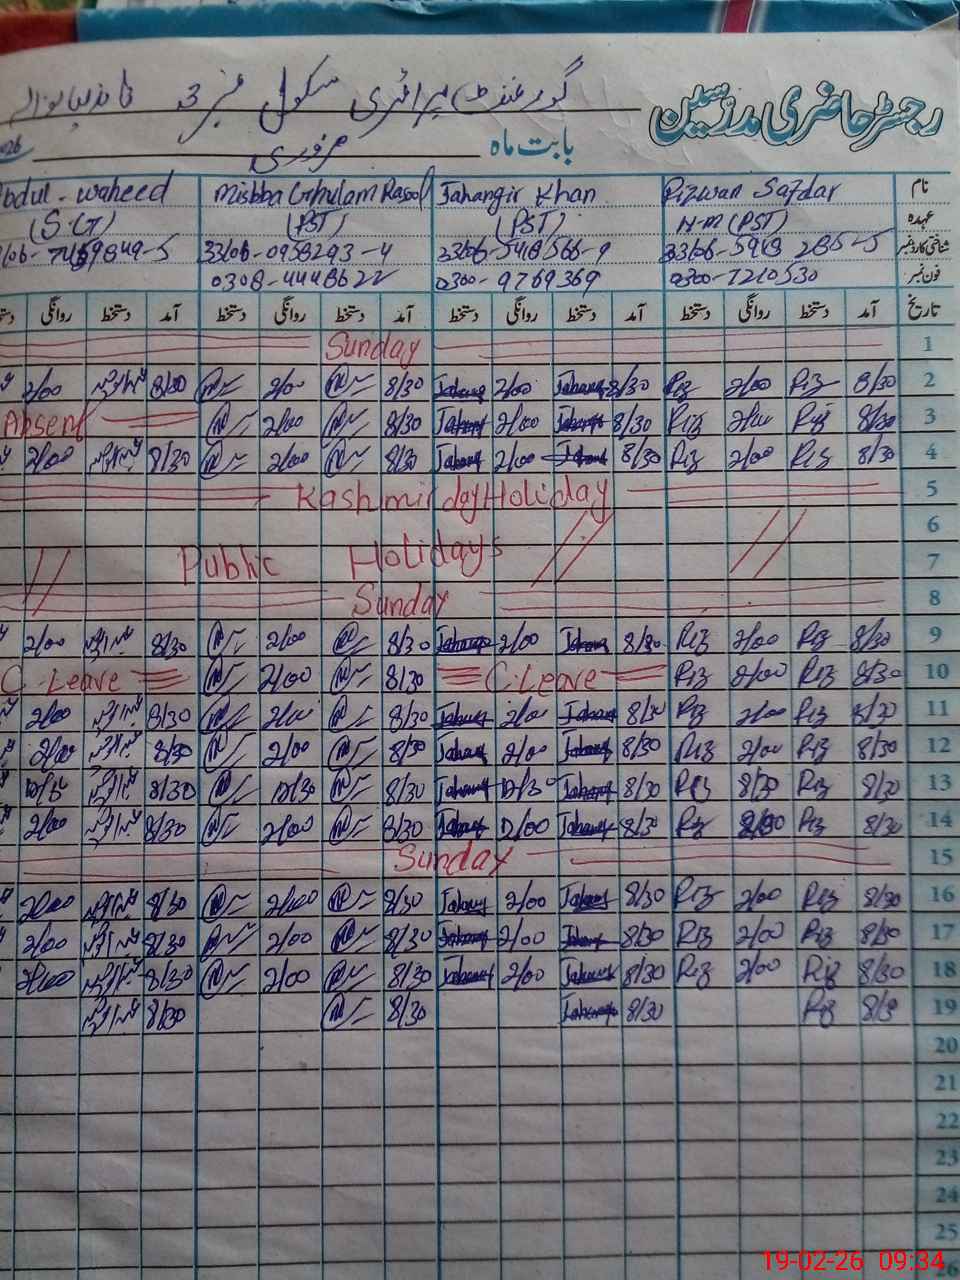 رجسٹر حاضری مدرسین گورنمنٹ پرائمری سکول نمبر 3
بابت ماہ فروری
نام Rizwan Safdar Jahangir Khan Misbba Ghulam Rasool bdul-waheed
عہدہ H-M (PST) (PST) (PST) (S.G)
شناختی کارڈ نمبر
فون نمبر 0300-7210530 0300-9769369 0308-4448622
تاریخ آمد دستخط روانگی دستخط آمد دستخط روانگی دستخط آمد دستخط روانگی دستخط آمد دستخط روانگی
1 Sunday
2 8/30 Riz 2/00 Riz 8/30 Jahang 2/00 Jahang 8/30 2/00 8/30 2/00
3 8/30 Riz 2/00 Riz 8/30 Jahang 2/00 Jahang 8/30 2/00 Absent
4 8/30 Riz 2/00 Riz 8/30 Jahang 2/00 Jahang 8/30 2/00 8/30 2/00
5 Kashmir day Holiday
6
7 Public Holidays
8 Sunday
9 8/30 Riz 2/00 Riz 8/30 Jahang 2/00 Jahang 8/30 2/00 8/30 2/00
10 8/30 Riz 2/00 Riz C.Leave 8/30 2/00 C.Leave
11 8/30 Riz 2/00 Riz 8/30 Jahang 2/00 Jahang 8/30 2/00 8/30 2/00
12 8/30 Riz 2/00 Riz 8/30 Jahang 2/00 Jahang 8/30 2/00 8/30 2/00
13 8/30 Riz Riz 8/30 Jahang 12/30 Jahang 8/30 12/30 8/30
14 8/30 Riz Riz 8/30 Jahang Jahang 8/30 2/00 8/30 2/00
15 Sunday
16 8/30 Riz 2/00 Riz 8/30 Jahang 2/00 Jahang 8/30 2/00 8/30 2/00
17 8/30 Riz 2/00 Riz 8/30 Jahang 2/00 Jahang 8/30 2/00 8/30 2/00
18 8/30 Riz 2/00 Riz 8/30 Jahang 2/00 Jahang 8/30 2/00 8/30 2/00
19 8/30 Riz 8/30 Jahang 8/30 8/30
20
21
22
23
24
25
26
19-02-26 09:34